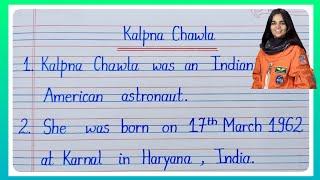 Kalpna Chawla
1. Kalpna Chawla was an Indian
American astronaut.
2. She was born on 17th March 1962
at Karnal in Haryana, India.